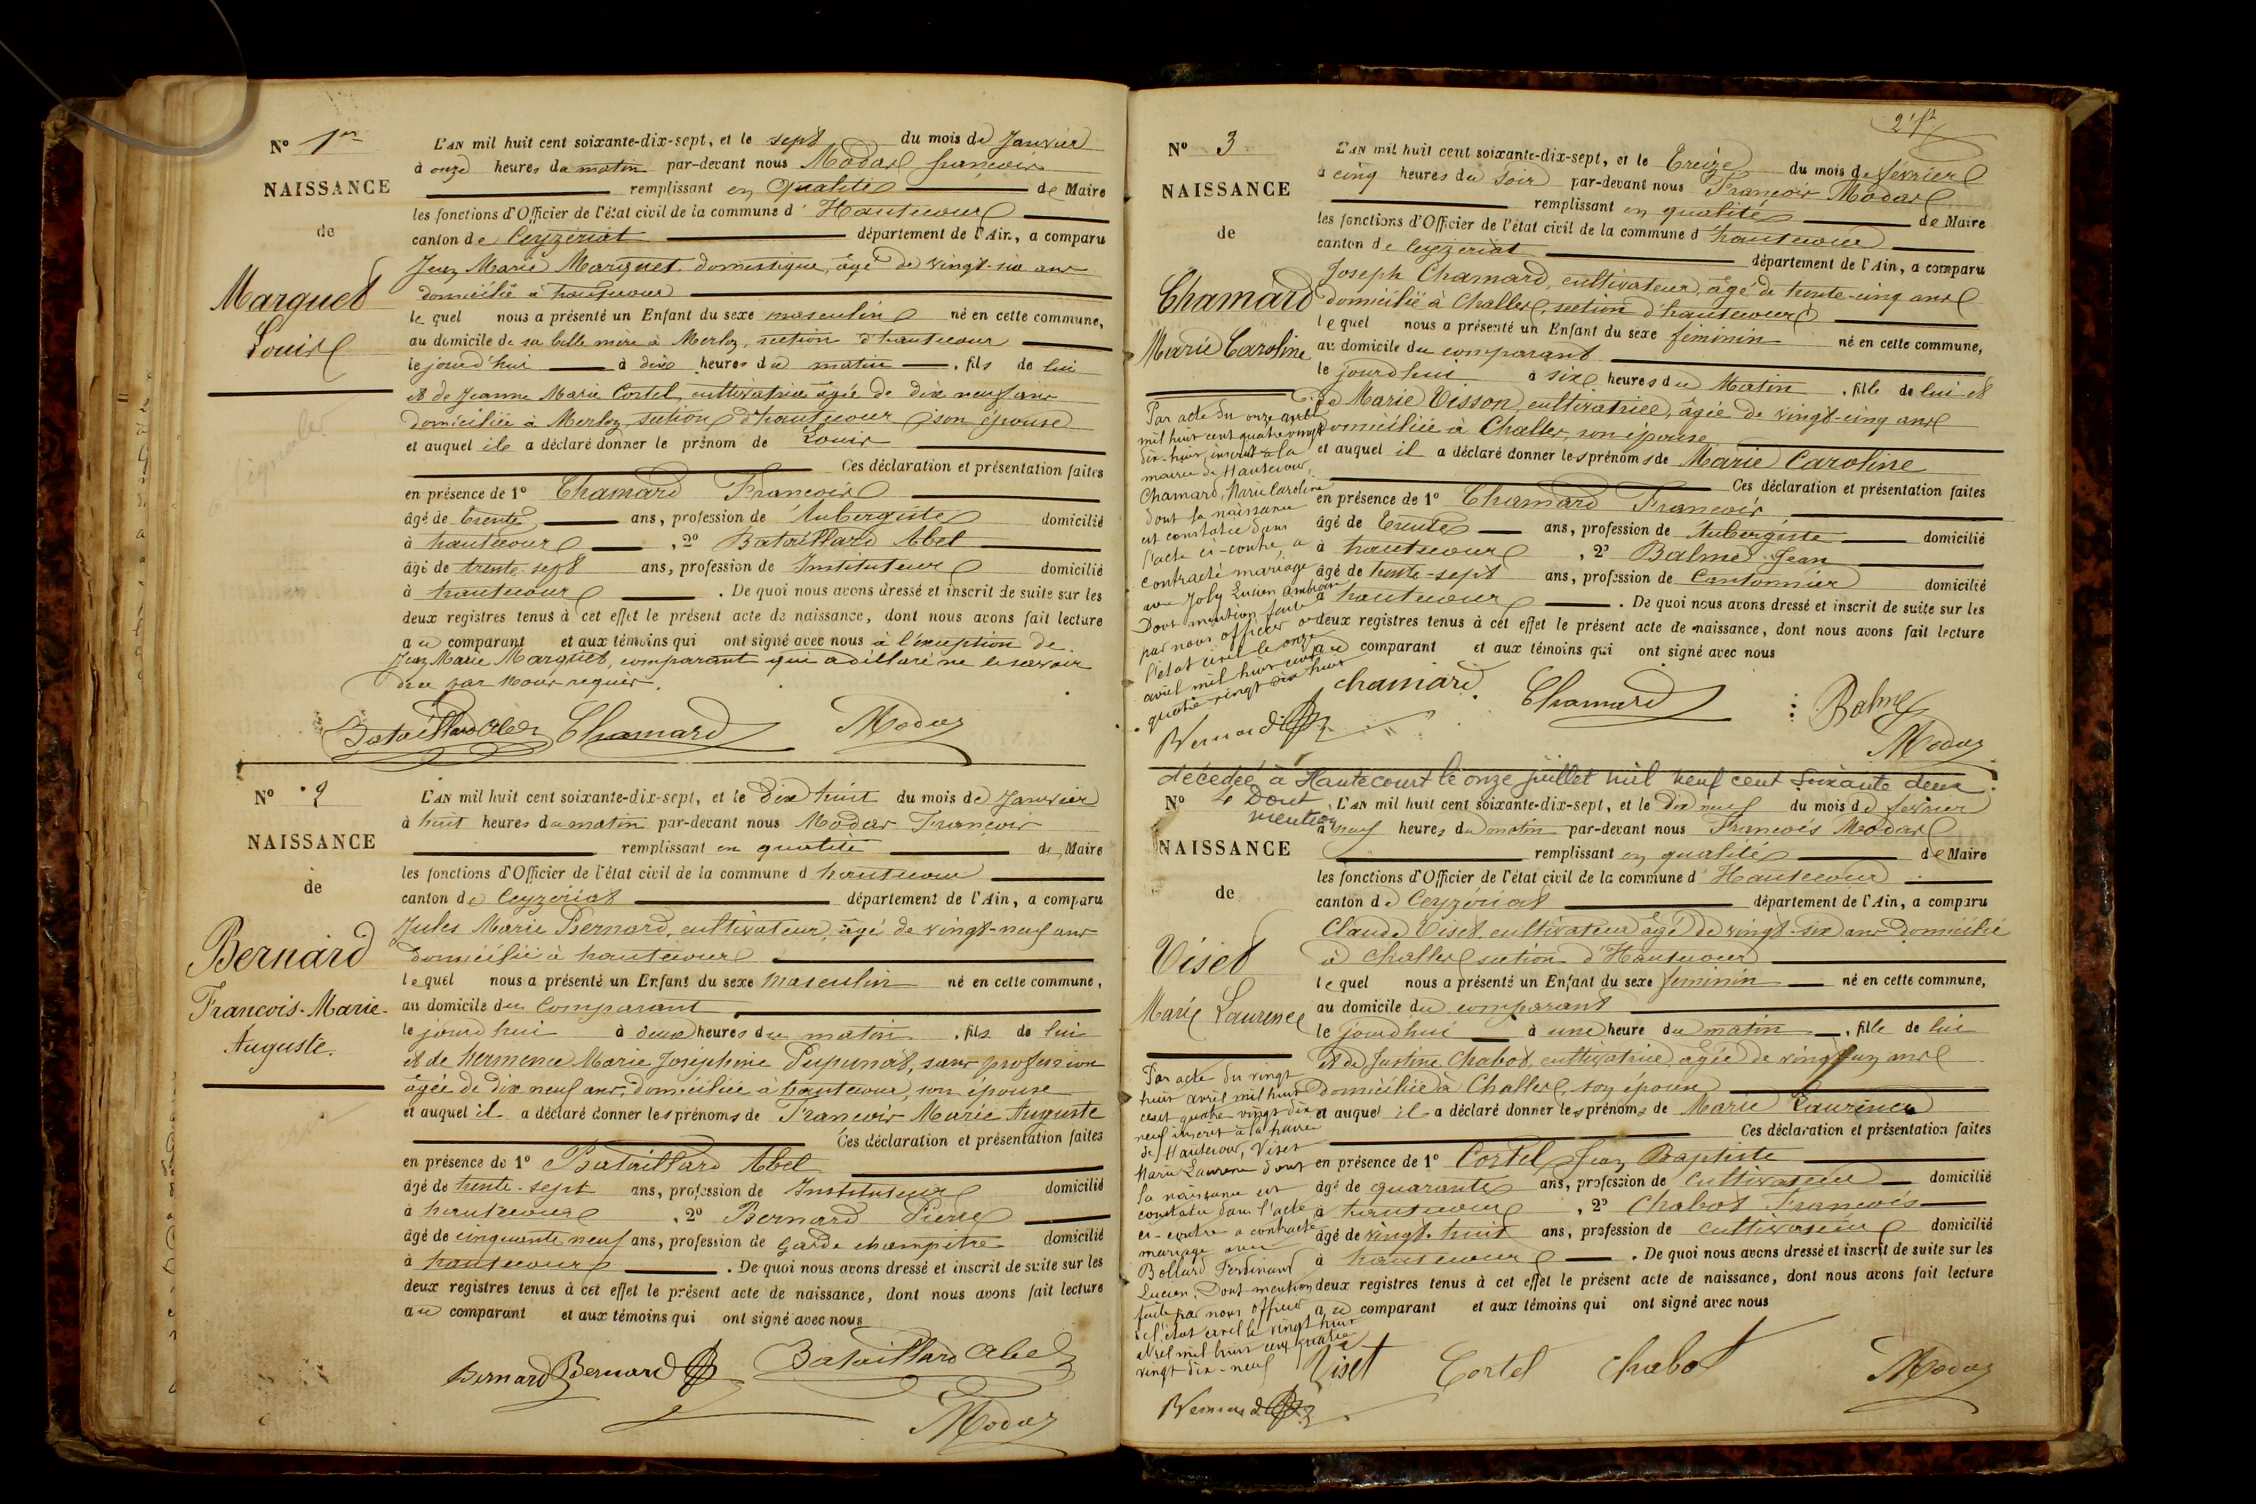 Nº 1er
NAISSANCE
de
Marguet
Louis
L'AN mil huit cent soixante-dix-sept, et le sept du mois de Janvier
à onze heures du matin par-devant nous Modas françois
remplissant en qualité de Maire
les fonctions d'Officier de l'état civil de la commune d' Hautecour
canton de Ceyzériat département de l'Ain, a comparu
Jean Marie Marguet, domestique, âgé de vingt-six ans
domicilié à hautecour
lequel nous a présenté un Enfant du sexe masculin né en cette commune,
au domicile de sa belle mère à Merloz, section d'hautecour
le jourd'hui à dix heures du matin, fils de lui
et de Jeanne Marie Cortel, cultivatrice âgée de dix neuf ans
domiciliée à Merloz, section d'hautecour son épouse
et auquel il a déclaré donner le prénom de Louis
Ces déclaration et présentation faites
en présence de 1º Chamard François
âgé de trente ans, profession de Aubergiste domicilié
à hautecour, 2º Bataillard Abel
âgé de trente-sept ans, profession de Instituteur domicilié
à hautecour. De quoi nous avons dressé et inscrit de suite sur les
deux registres tenus à cet effet le présent acte de naissance, dont nous avons fait lecture
au comparant et aux témoins qui ont signé avec nous à l'exception de
Jean Marie Marguet, comparant qui a déclaré ne le savoir
de ce par nous requis.
Bataillard Abel Chamard Modas
Nº 2
NAISSANCE
de
Bernard
Francois-Marie-
Auguste.
L'AN mil huit cent soixante-dix-sept, et le dix huit du mois de Janvier
à huit heures du matin par-devant nous Modas François
remplissant en qualité de Maire
les fonctions d'Officier de l'état civil de la commune d hautecour
canton de Ceyzériat département de l'Ain, a comparu
Jules Marie Bernard, cultivateur, âgé de vingt-neuf ans
domicilié à hautecour
lequel nous a présenté un Enfant du sexe masculin né en cette commune,
au domicile du Comparant
le jourd'hui à deux heures du matin, fils de lui
et de hermence Marie Joséphine Pupunat, sans profession
âgée de dix neuf ans, domiciliée à hautecour, son épouse
et auquel il a déclaré donner les prénoms de François Marie Auguste
Ces déclaration et présentation faites
en présence de 1º Bataillard Abel
âgé de trente-sept ans, profession de Instituteur domicilié
à hautecour, 2º Bernard Pierre
âgé de cinquante neuf ans, profession de Garde champêtre domicilié
à hautecour. De quoi nous avons dressé et inscrit de suite sur les
deux registres tenus à cet effet le présent acte de naissance, dont nous avons fait lecture
au comparant et aux témoins qui ont signé avec nous
Bernard Bernard Bataillard Abel
Modas
Nº 3
NAISSANCE
de
Chamard
Marie Caroline
L'AN mil huit cent soixante-dix-sept, et le Treize du mois de février
à cinq heures du soir par-devant nous François Modas
remplissant en qualité de Maire
les fonctions d'Officier de l'état civil de la commune d' hautecour
canton de Ceyzériat département de l'Ain, a comparu
Joseph Chamard, cultivateur, âgé de trente-cinq ans
domicilié à Challes, section d'hautecour
lequel nous a présenté un Enfant du sexe féminin né en cette commune,
au domicile du comparant
le jourd'hui à six heures du Matin, fille de lui et
de Marie Visson, cultivatrice, âgée de vingt-cinq ans
domiciliée à Challes, son épouse
et auquel il a déclaré donner les prénoms de Marie Caroline
Ces déclaration et présentation faites
en présence de 1º Chamard François
âgé de Trente ans, profession de Aubergiste domicilié
à hautecour, 2º Balme Jean
âgé de trente-sept ans, profession de Cantonnier domicilié
à hautecour. De quoi nous avons dressé et inscrit de suite sur les
deux registres tenus à cet effet le présent acte de naissance, dont nous avons fait lecture
au comparant et aux témoins qui ont signé avec nous
chamard Chamard Balme
Modas
Par acte du onze avril
mil huit cent quatre vingt
dix-huit, inscrit à la
mairie de Hautecour,
Chamard, Marie Caroline
dont la naissance
est constatée dans
l'acte ci-contre, a
contracté mariage
avec Joly Lucien Ambroise
Dont mention faite
par nous officier de
l'état civil le onze
avril mil huit cent
quatre vingt dix huit
Bernard
décédée à Hautecourt le onze juillet mil neuf cent soixante deux.
Dont
mention
Nº 4
NAISSANCE
de
Viset
Marie Laurence
L'AN mil huit cent soixante-dix-sept, et le dix neuf du mois de février
à neuf heures du matin par-devant nous François Modas
remplissant en qualité de Maire
les fonctions d'Officier de l'état civil de la commune d' Hautecour
canton de Ceyzériat département de l'Ain, a comparu
Claude Viset, cultivateur âgé de vingt-six ans domicilié
à Challes section d'Hautecour
lequel nous a présenté un Enfant du sexe féminin né en cette commune,
au domicile du comparant
le jourd'hui à une heure du matin, fille de lui
et de Justine Chabot, cultivatrice, âgée de vingt un ans
domiciliée à Challes, son épouse
et auquel il a déclaré donner les prénoms de Marie Laurence
Ces déclaration et présentation faites
en présence de 1º Cortel Jean Baptiste
âgé de quarante ans, profession de Cultivateur domicilié
à hautecour, 2º Chabot François
âgé de vingt-huit ans, profession de cultivateur domicilié
à hautecour. De quoi nous avons dressé et inscrit de suite sur les
deux registres tenus à cet effet le présent acte de naissance, dont nous avons fait lecture
au comparant et aux témoins qui ont signé avec nous
Viset Cortel Chabot Modas
Par acte du vingt
huit avril mil huit
cent quatre vingt dix
neuf inscrit à la mairie
de Hautecour, Viset
Marie Laurence dont
la naissance est
constatée dans l'acte
ci-contre a contracté
mariage avec
Bollard Ferdinand
Lucien, Dont mention
faite par nous officier
de l'état civil le vingt huit
avril mil huit cent quatre
vingt dix-neuf
Bernard